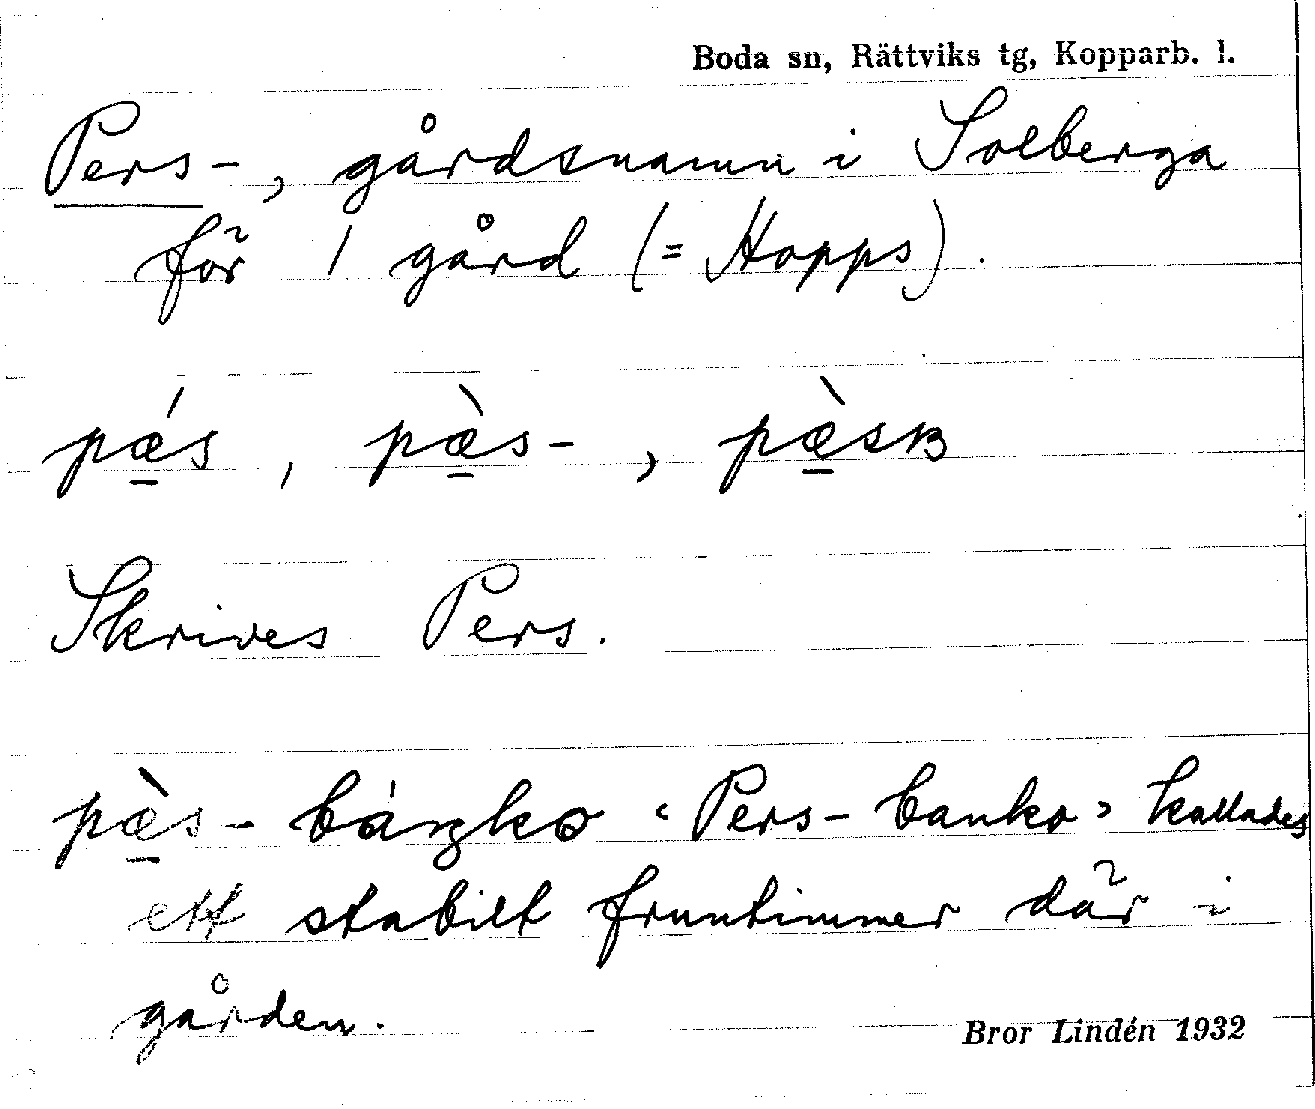 Boda sn, Rättviks tg, Kopparb. l.
Pers-, gårdsnamn i Solberga
för 1 gård (= Hopps).
pǽs, pæ̀s-, pæ̀sɴ
Skrives Pers.
pæ̀s-báŋko ‹Pers-banko› kallades
ett stabilt fruntimmer där i
gården.
Bror Lindén 1932